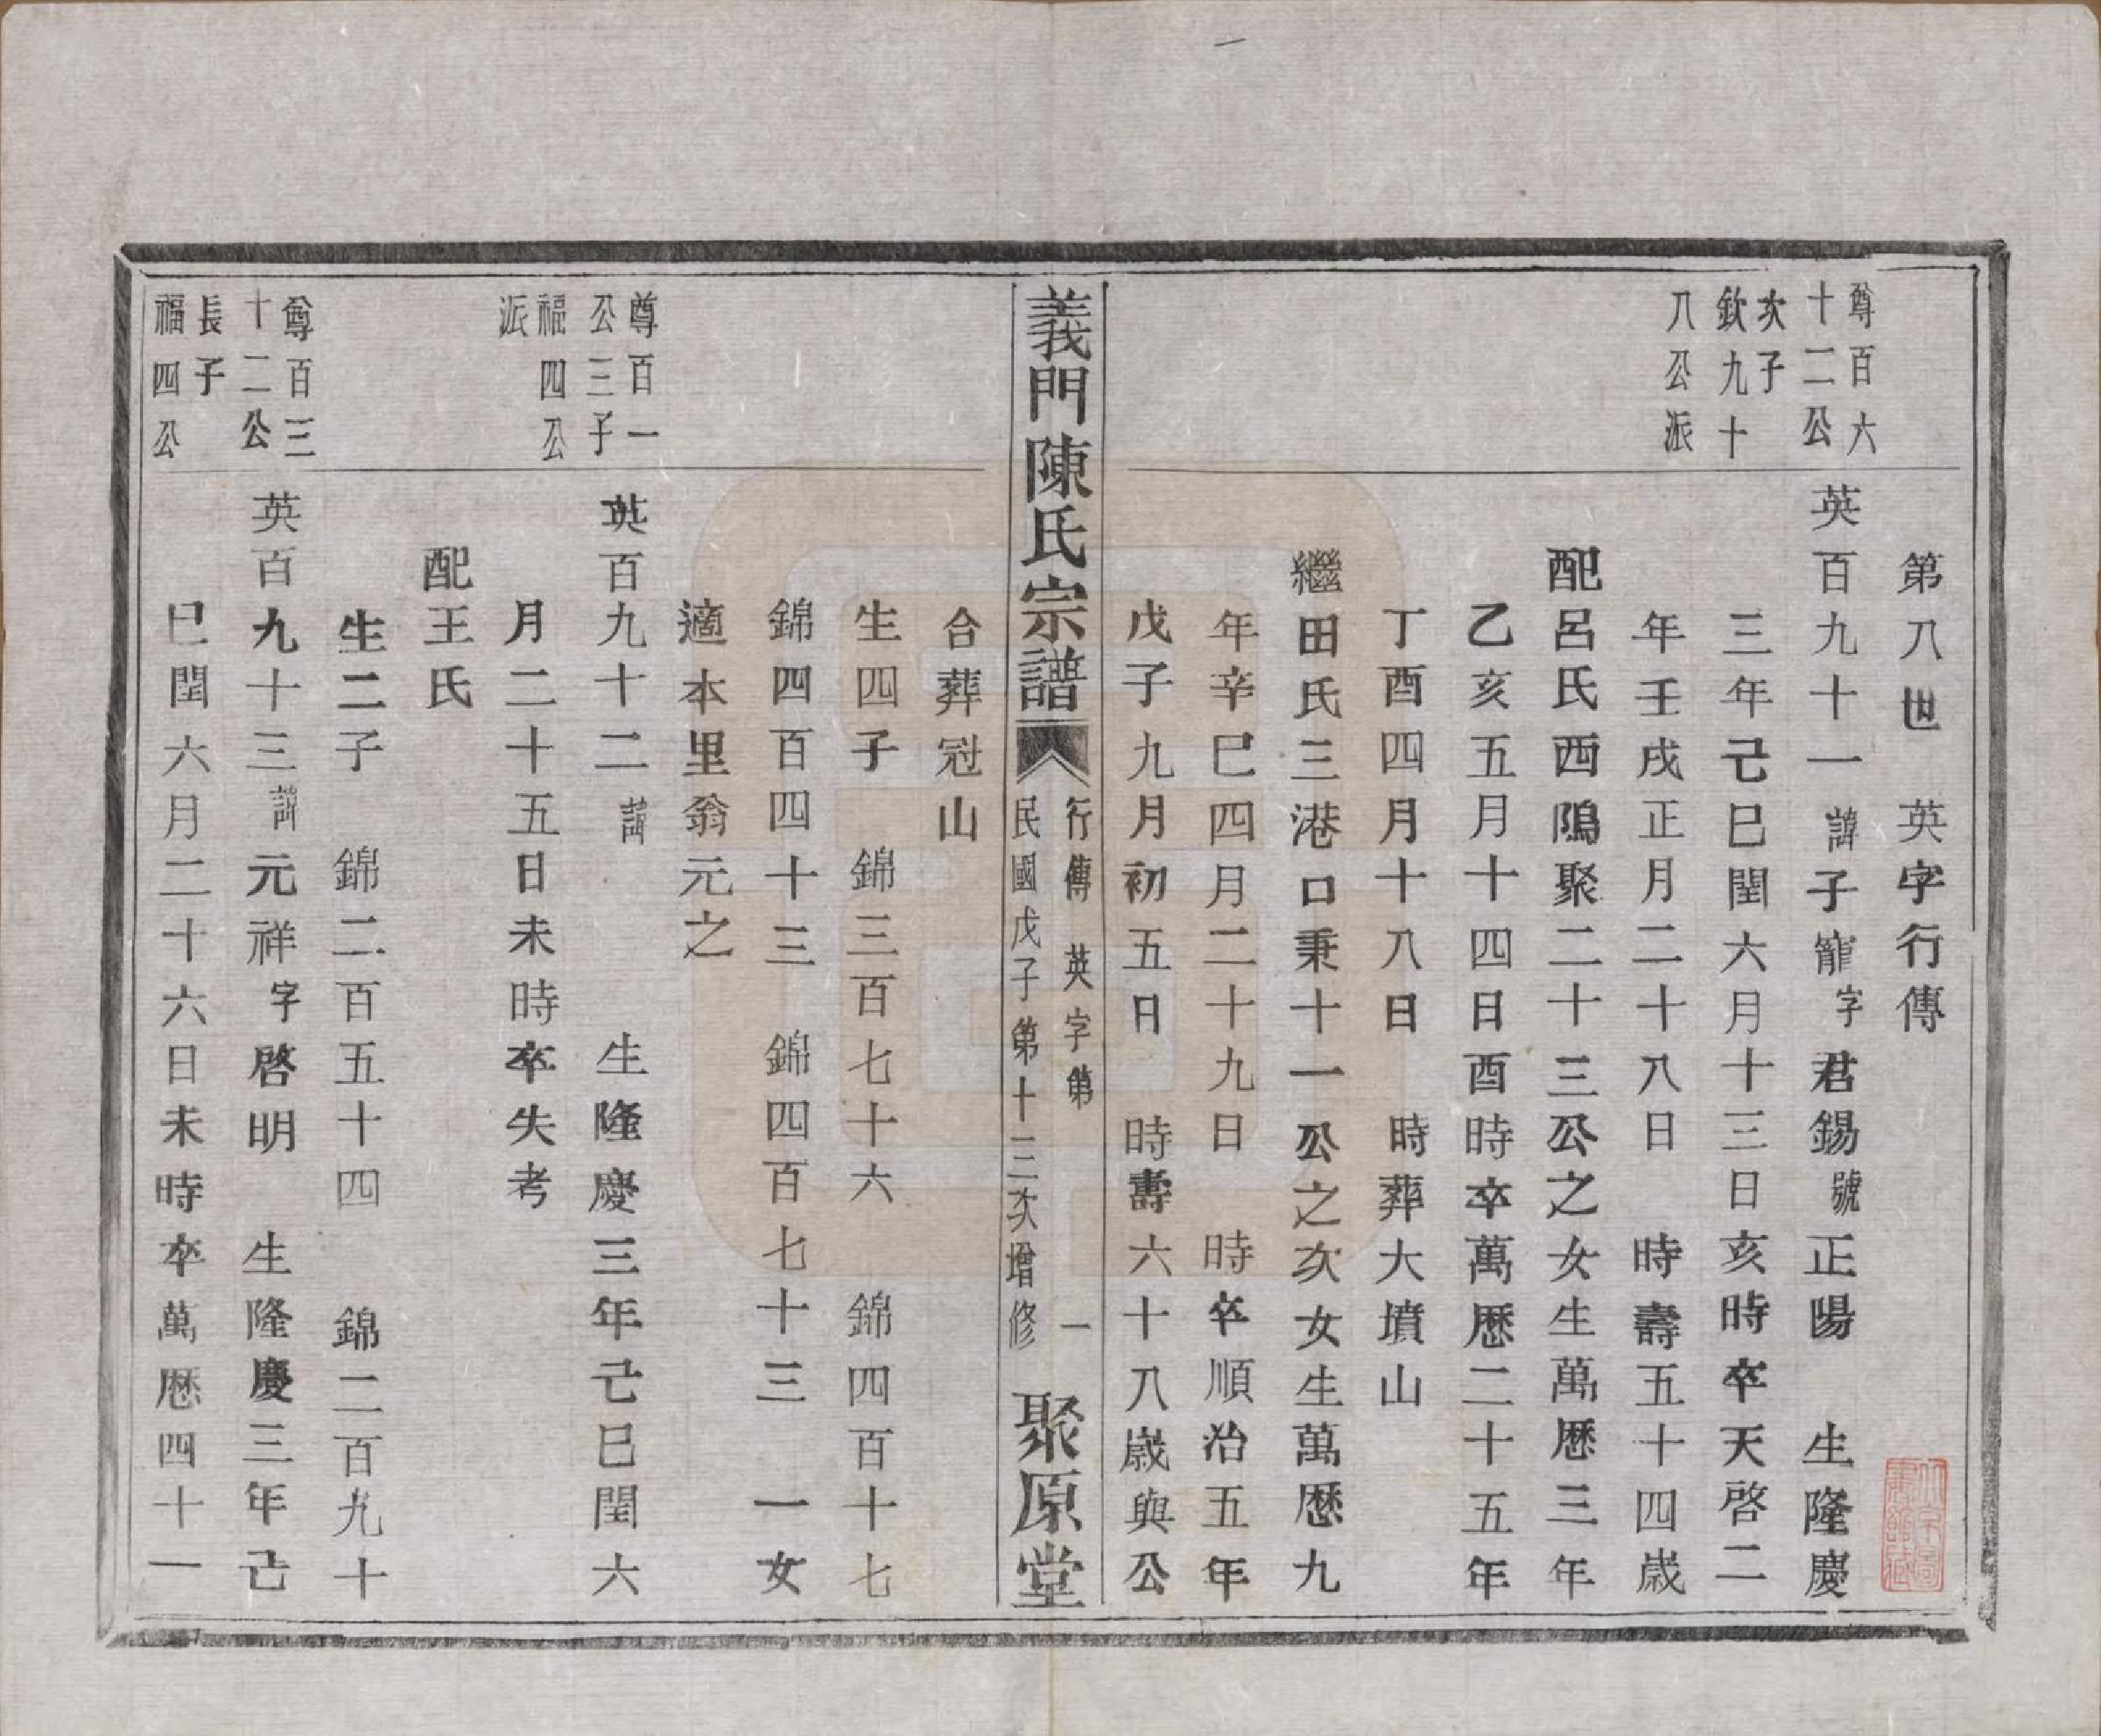 第八世　英字行傳
尊百六
十二公
次子
欽九十
八公派
英百九十一諱子寵字君錫號正陽　生隆慶
三年己巳閏六月十三日亥時卒天啓二
年壬戌正月二十八日　時壽五十四歲
配呂氏西隖聚二十三公之女生萬歷三年
乙亥五月十四日酉時卒萬歷二十五年
丁酉四月十八日　時葬大墳山
繼田氏三港口秉十一公之次女生萬歷九
年辛巳四月二十九日　時卒順治五年
戊子九月初五日　時壽六十八歲與公
義門陳氏宗譜
行傳　英字第　一
民國戊子第十三次增修
聚原堂
合葬冠山
生四子　錦三百七十六　錦四百十七
錦四百四十三　錦四百七十三　一女
適本里翁元之
尊百一
公三子
福四公
派
英百九十二諱　　生隆慶三年己巳閏六
月二十五日未時卒失考
配王氏
生二子　錦二百五十四　錦二百九十
尊百三
十二公
長子
福四公
英百九十三諱元祥字啓明　生隆慶三年己
巳閏六月二十六日未時卒萬歷四十一